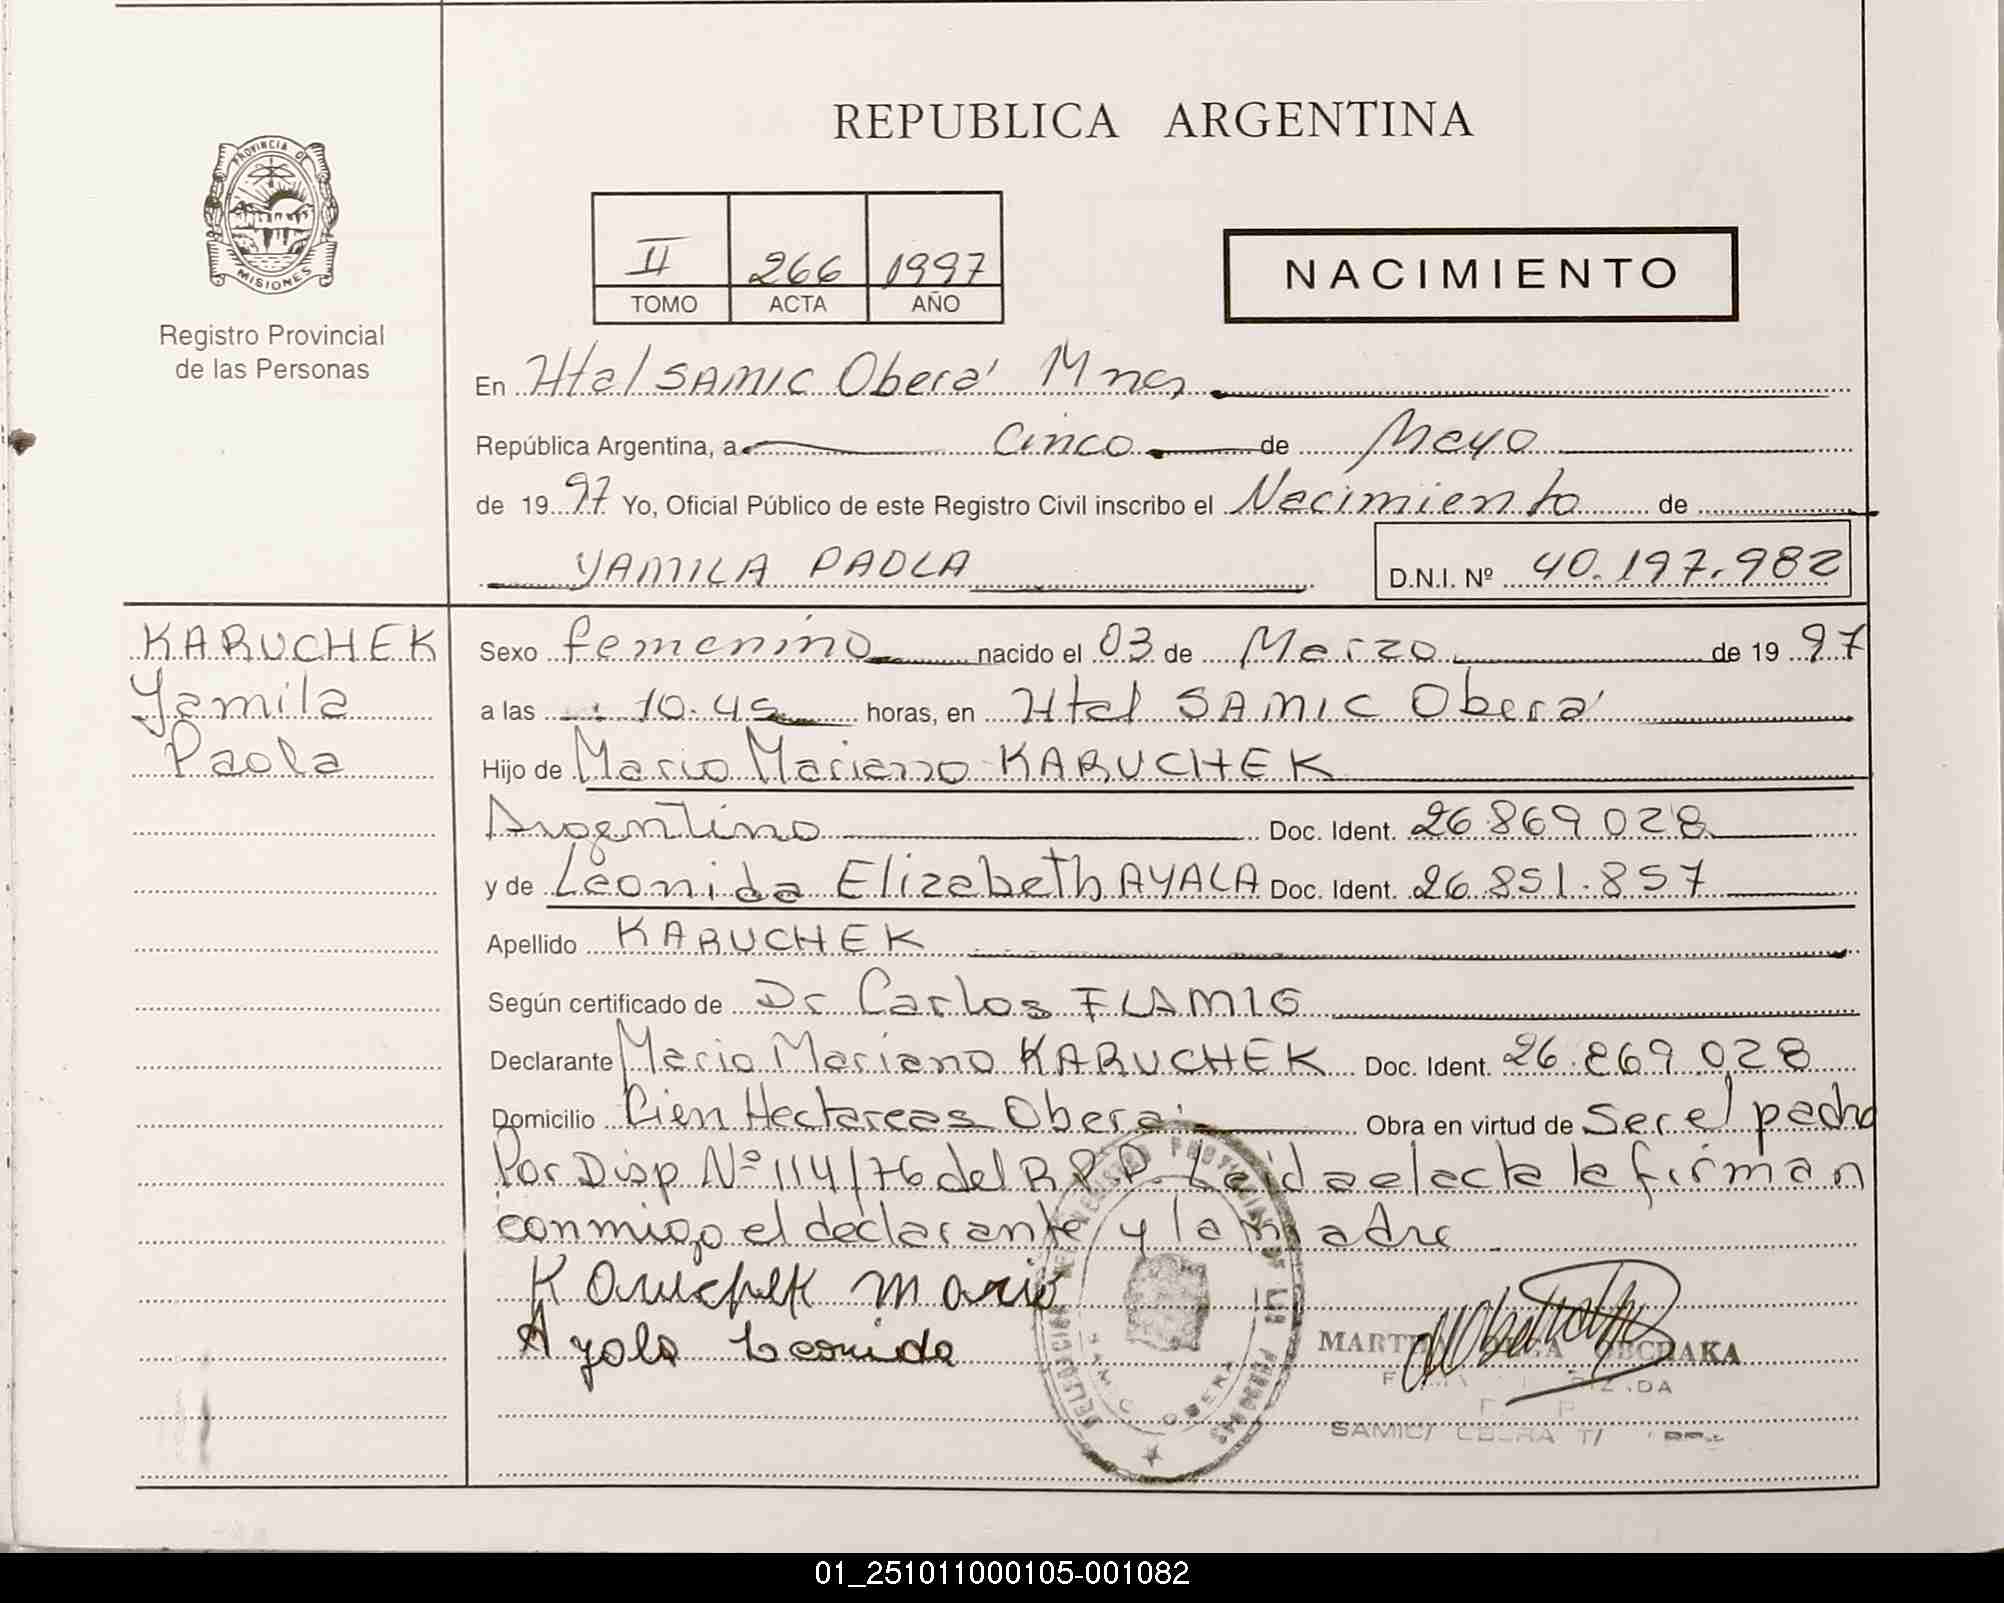 REPUBLICA ARGENTINA
PROVINCIA DE
MISIONES
Registro Provincial
de las Personas
II 266 1997
TOMO ACTA AÑO
NACIMIENTO
En Htal SAMIC Oberá Mnes
República Argentina, a cinco de Mayo
de 1997 Yo, Oficial Público de este Registro Civil inscribo el Nacimiento de
YAMILA PAOLA D.N.I. Nº 40.197.982
KARUCHEK
Yamila
Paola
Sexo femenino nacido el 03 de Marzo de 1997
a las 10.45 horas, en Htal SAMIC Oberá
Hijo de Mario Mariano KARUCHEK
Argentino Doc. Ident. 26.869.028
y de Leonida Elizabeth AYALA Doc. Ident. 26.851.857
Apellido KARUCHEK
Según certificado de Dr. Carlos FLAMIG
Declarante Mario Mariano KARUCHEK Doc. Ident. 26.869.028
Domicilio Cien Hectareas Oberá Obra en virtud de Ser el padre
Por Disp Nº 114/76 del R.P.P. Leida el acta la firman
conmigo el declarante y la madre
Karuchek Mario
Ayala Leonida
SAMIC OBERA
01_251011000105-001082